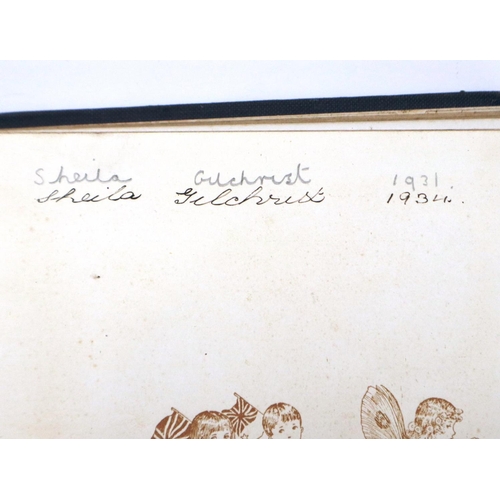 Sheila Gilchrist 1931.
Sheila Gilchrist 1934.